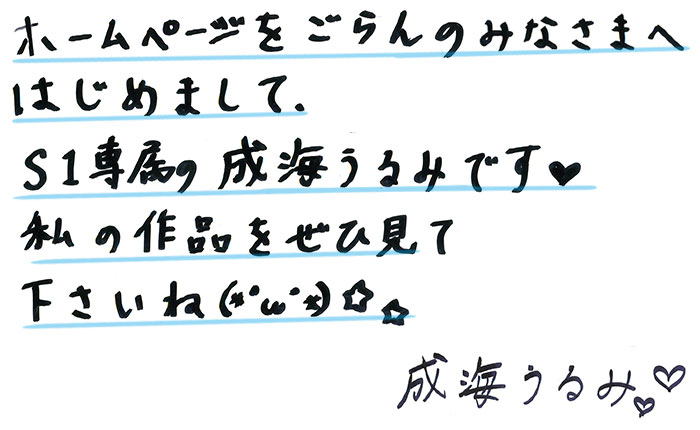 ホームページをごらんのみなさまへ
はじめまして.
S1専属の成海うるみです♥
私の作品をぜひ見て
下さいね(*´ω`*)☆☆
成海うるみ♡♡